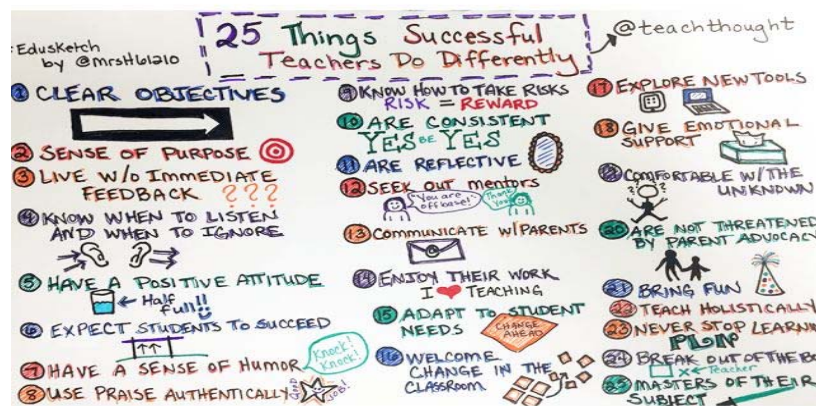 25 Things Successful
Teachers Do Differently
@teachthought
EduSketch
by @mrsH61210
1 CLEAR OBJECTIVES
2 SENSE OF PURPOSE
3 LIVE W/O IMMEDIATE
FEEDBACK ???
4 KNOW WHEN TO LISTEN
AND WHEN TO IGNORE
5 HAVE A POSITIVE ATTITUDE
Half
full!!
6 EXPECT STUDENTS TO SUCCEED
7 HAVE A SENSE OF HUMOR
Knock!
Knock!
8 USE PRAISE AUTHENTICALLY
GOOD
JOB!
9 KNOW HOW TO TAKE RISKS
RISK = REWARD
10 ARE CONSISTENT
YES BE YES
11 ARE REFLECTIVE
12 SEEK OUT mentors
"You are
off base!"
Thank
You!
13 COMMUNICATE W/PARENTS
14 ENJOY THEIR WORK
I ❤ TEACHING
15 ADAPT TO STUDENT
NEEDS
CHANGE
AHEAD
16 WELCOME
CHANGE IN THE
CLASSROOM
17 EXPLORE NEW TOOLS
18 GIVE EMOTIONAL
SUPPORT
19 COMFORTABLE W/THE
UNKNOWN
20 ARE NOT THREATENED
BY PARENT ADVOCACY
21 BRING FUN
22 TEACH HOLISTICALLY
23 NEVER STOP LEARNIN
PLN
24 BREAK OUT OF THE BO
Teacher
25 MASTERS OF THEIR
SUBJECT